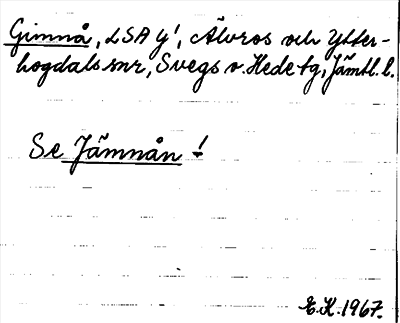 Gimnå, LSA y!, Älvros och Ytter-
hogdals snr, Svegs o. Hede tg, Jämtl. l.
Se Jämnån!
E.K. 1967.